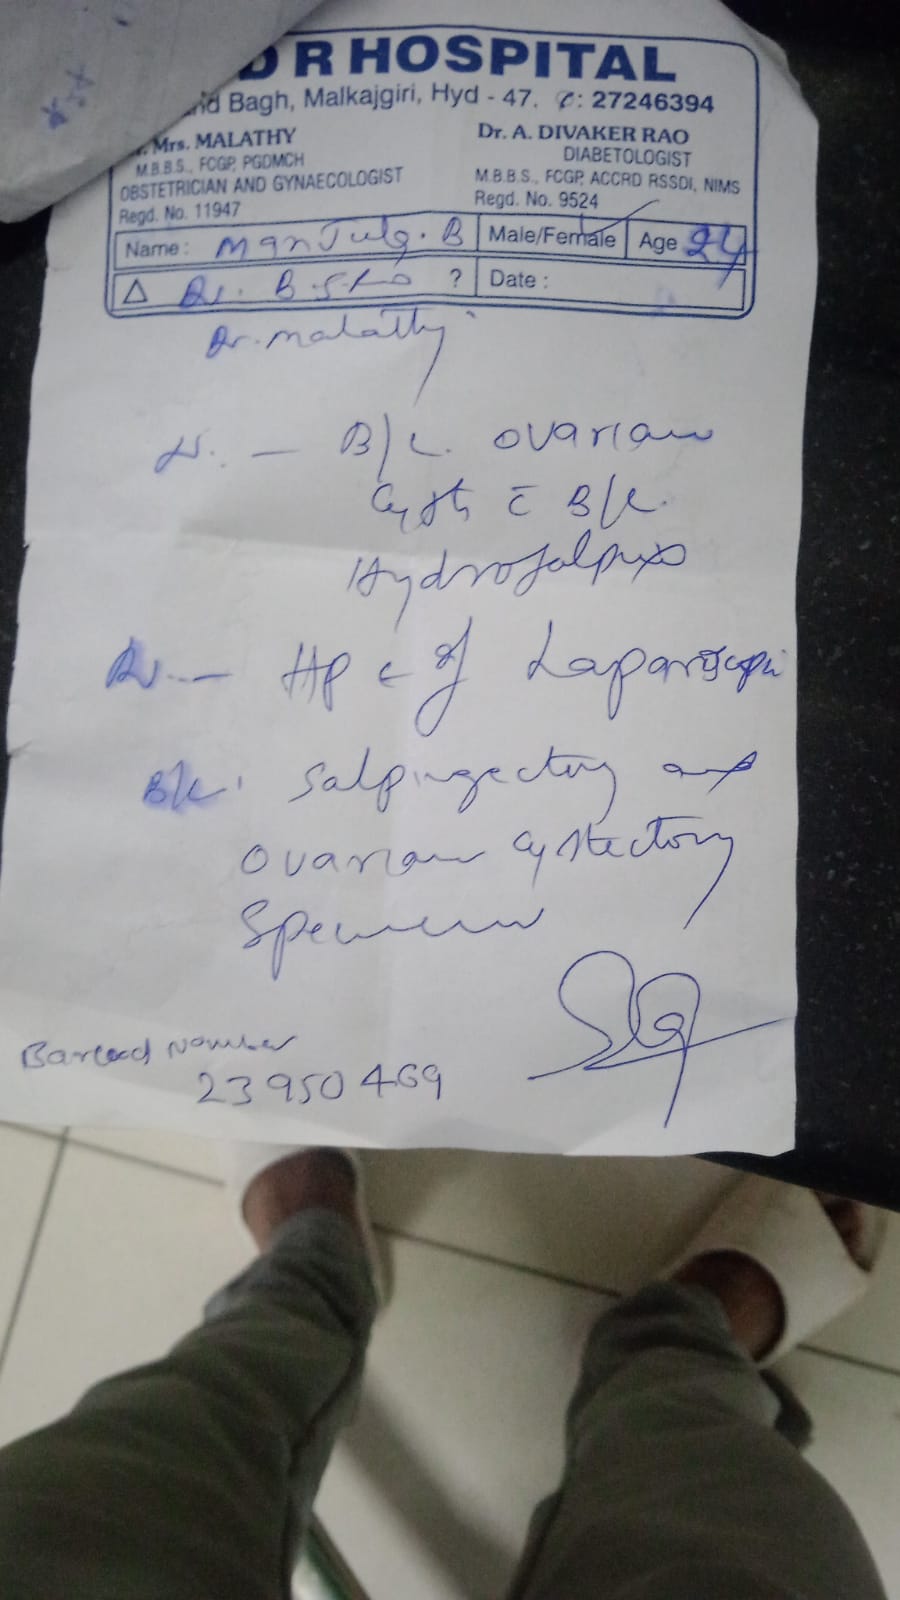 D R HOSPITAL
Bagh, Malkajgiri, Hyd - 47. ✆: 27246394
Mrs. MALATHY
M.B.B.S., FCGP, PGDMCH
OBSTETRICIAN AND GYNAECOLOGIST
Regd. No. 11947
Dr. A. DIVAKER RAO
DIABETOLOGIST
M.B.B.S., FCGP, ACCRD RSSDI, NIMS
Regd. No. 9524
Name: Manjula. B Male/Female Age 24
△ Dr. ? Date:
Dr. malathy
— B/L. ovarian
Cysts c̄ B/L.
Hydrosalpinx
— HPE of Laparoscopic
B/L. Salpingectomy and
Ovarian cystectomy
Specimen
Barcod Number
23950469